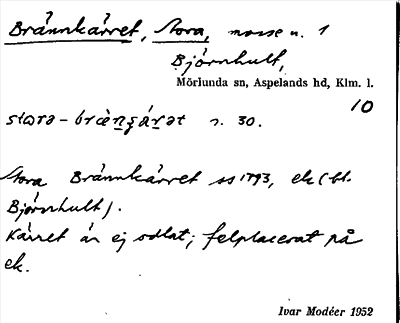 Brännkärret, Stora, mosse n. 1
Björnhult,
Mörlunda sn, Aspelands hd, Klm. l.
10
n. 30.
Stora Brännkärret ss 1793, ek (bl.
Björnhult).
Kärret är ej odlat; felplacerat på
ek.
Ivar Modéer 1952